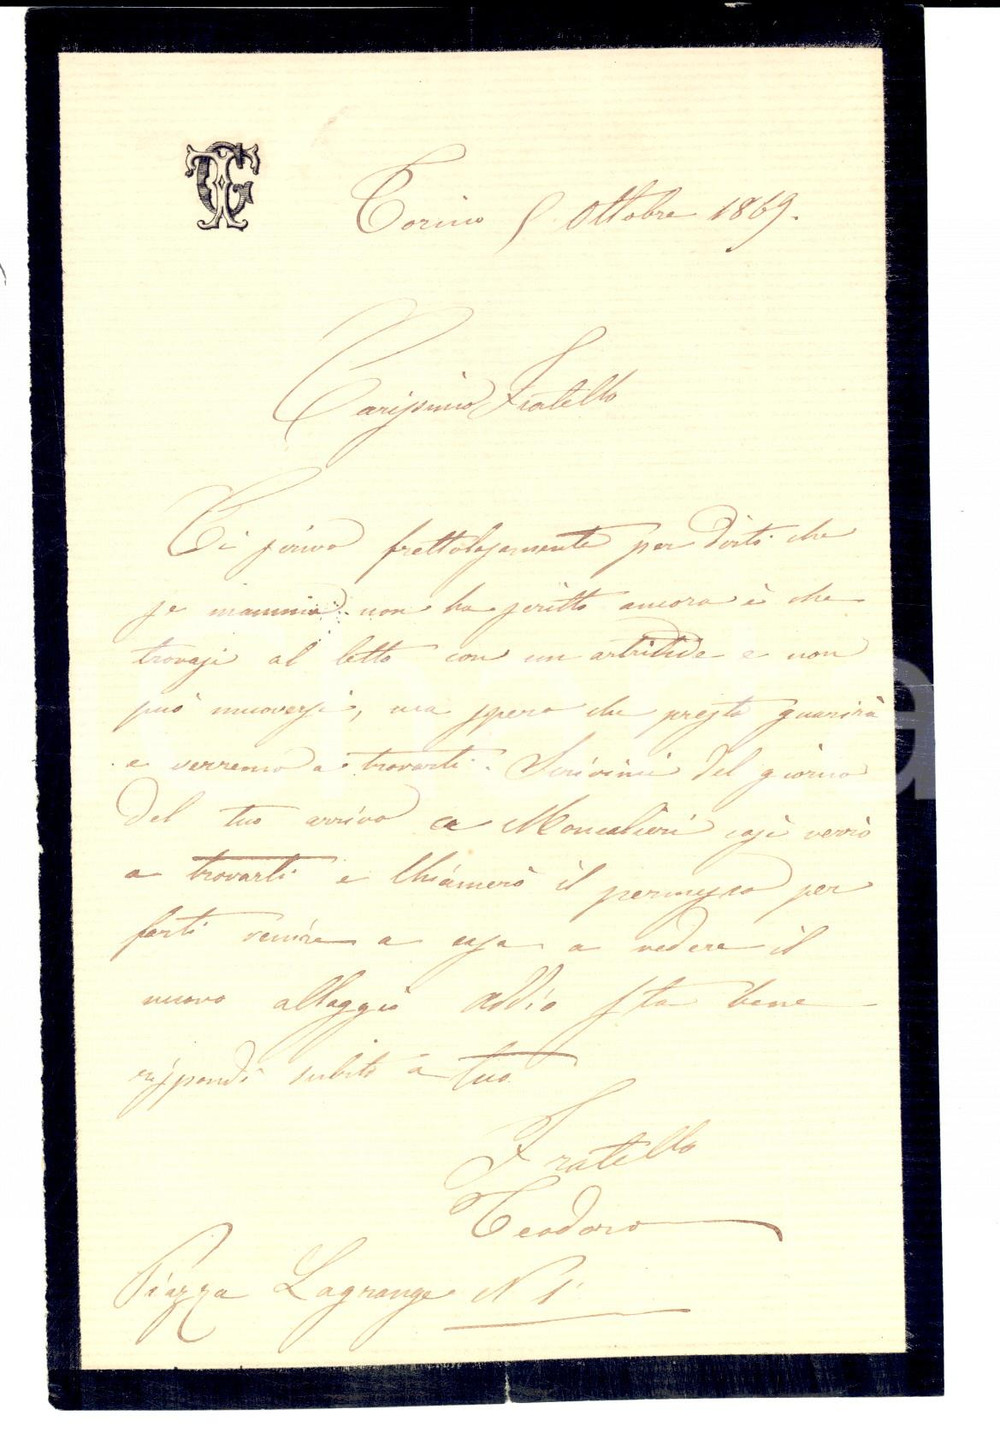 TG
Torino 5 Ottobre 1869.
Carissimo Fratello
Ti scrivo frettolosamente per dirti che
se mamma non ha scritto ancora è che
trovasi al letto con un artritide e non
può muoversi, ma spero che presto guarirà
e verremo a trovarti. Scrivimi del giorno
del tuo arrivo a Moncalieri così verrò
a trovarti e chiamerò il permesso per
farti venire a casa a vedere il
nuovo alloggio addio sta bene
rispondi subito a tuo
Fratello
Teodoro
Piazza Lagrange N 1